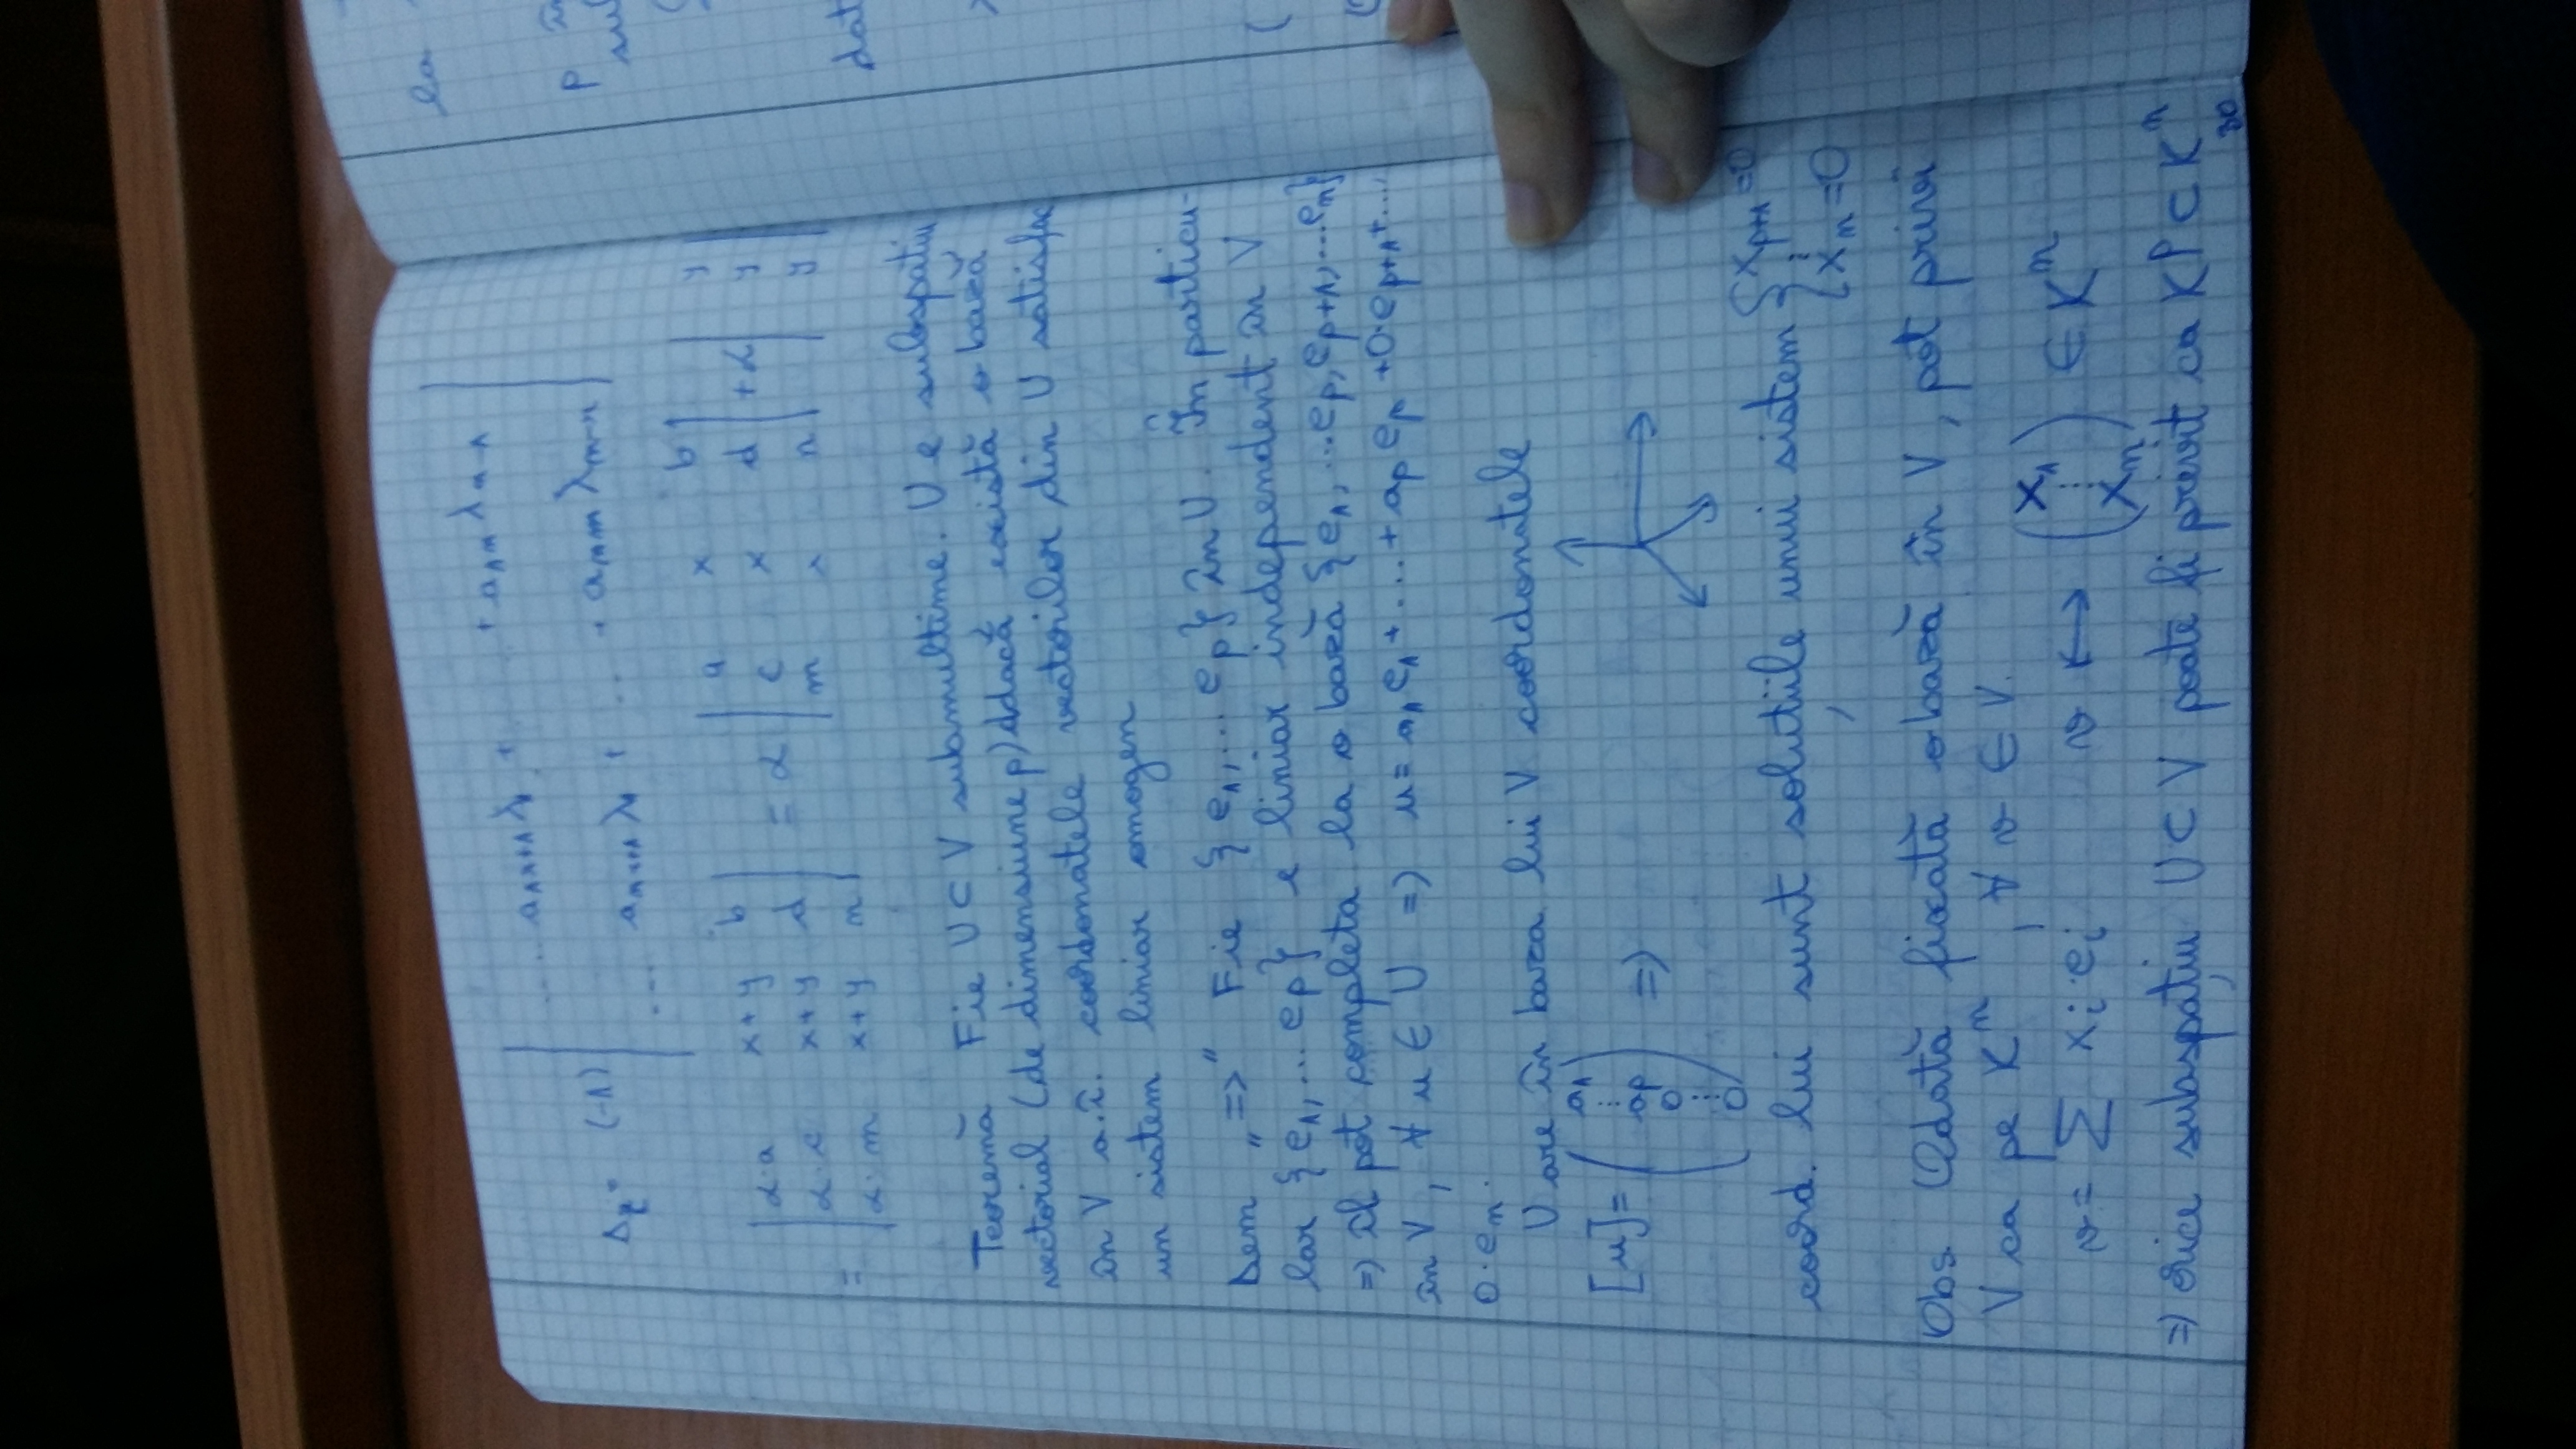 ..... + ..... + a₁ₙ λₙ₋₁
= (-1) | |
.... λ₁ + ... + λ
= | α·a x+y b | = α | a x b | + α | y |
| α·c x+y d | | c x d | | y |
| α·m x+y n | | m x n | | y |
Teoremă Fie U ⊂ V submultime. U e subspatiu
vectorial (de dimensiune p) ddacă există o bază
în V a.î. coordonatele vectorilor din U satisfac
un sistem liniar omogen
Dem „=>” Fie {e₁,... eₚ} în U. În particu-
lar {e₁,... eₚ} e liniar independent în V
=> îl pot completa la o bază {e₁, ...eₚ, eₚ₊₁,...eₙ}
în V, ∀ u ∈ U => u = a₁e₁ + ... + aₚ eₚ + 0·eₚ₊₁+....
0·eₙ.
U are în baza lui V coordonatele
[u] = ( a₁ ... aₚ 0 ... 0 ) =>
coord. lui sunt soluțiile unui sistem { xₚ₊₁ = 0 ⋮ xₙ = 0
Obs. Odată fixată o bază în V, pot privi
V ca pe Kⁿ, ∀ v ∈ V.
v = Σ xᵢ·eᵢ v ↔ ( x₁ ⋮ xₙ ) ∈ Kⁿ
=> orice subspațiu U ⊂ V poate fi privit ca Kᵖ ⊂ Kⁿ
30
la
p în
dat